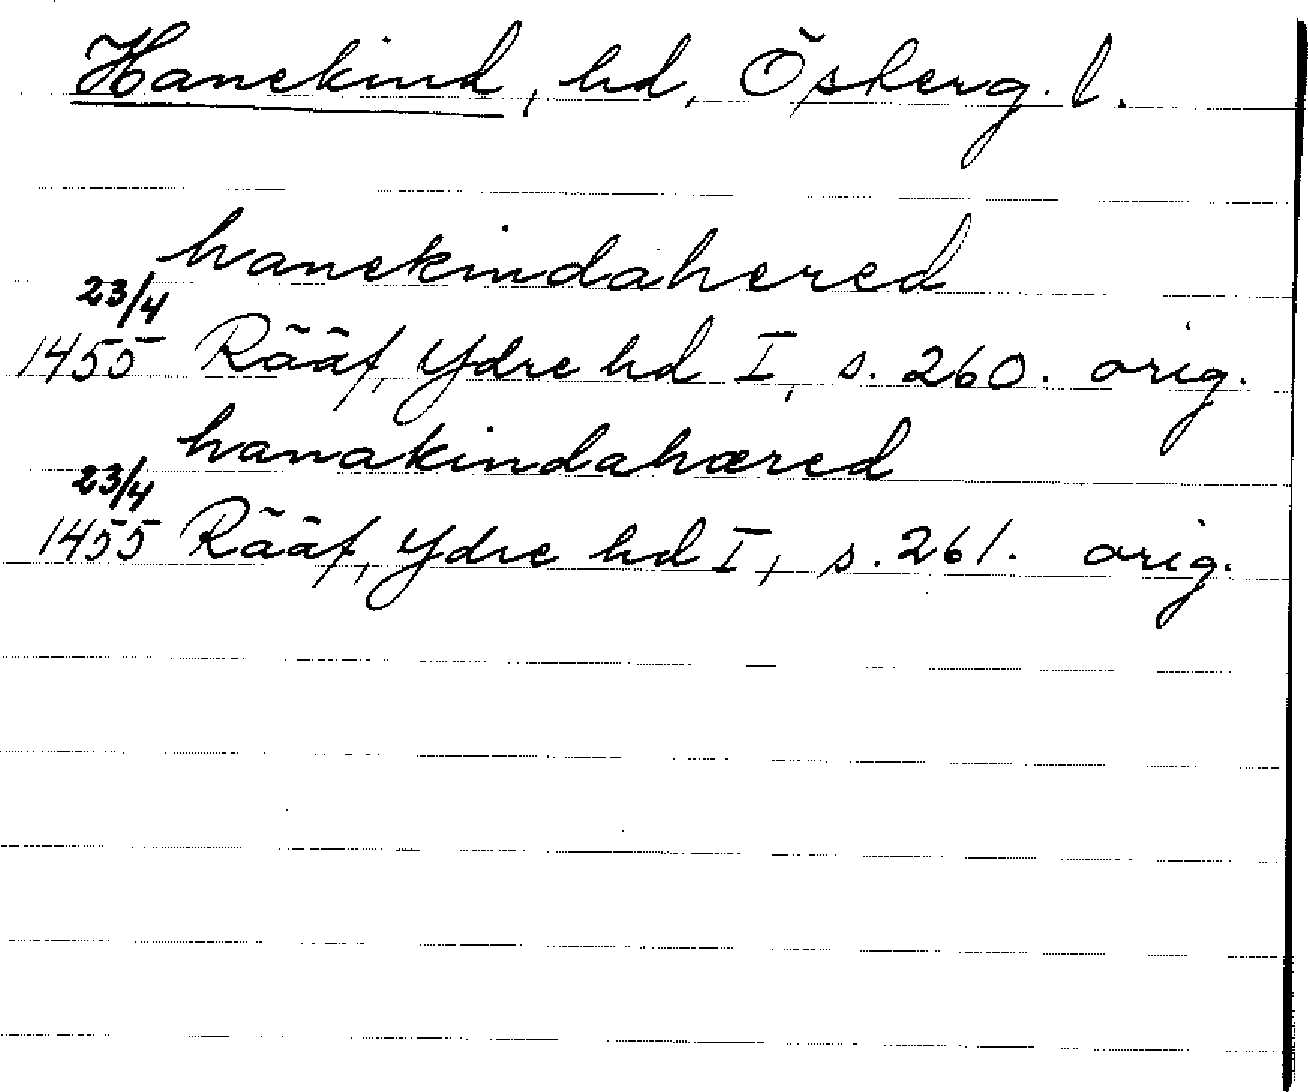 Hanekind, hd, Österg. l.
hanekindahered
23/4
1455 Rääf, Ydre hd I, s. 260. orig.
hanakindahæred
23/4
1455 Rääf, Ydre hd I, s. 261. orig.